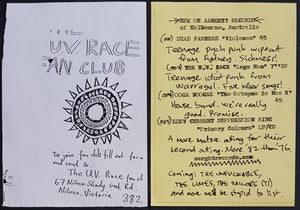 U.V. RACE
FAN CLUB
To join fan club fill out form
and send to.
The U.V. Race Ranch
67 Nilsen Shady Creek Rd.
Nilsen, Victoria
382
NEW ON AARGHT! RECORDS
of Melbourne, Australia
DEAD FARMERS "Violence" 45
Teenage psych punk wipeout
from Sydney. Sickness!
THE U.V. RACE "Lego Man" 7" EP
Teenage idiot punk from
Warragul. Five killer songs!
"The Octopus is Back" 45
House band. We're really
good. Promise.
EDDY CURRENT SUPPRESSION RING
"Primary Colours" LP/CD
A more mature outing for their
second outing. More 82 than 76.
aarghtrecords.com
Coming: THE UNFUCKABLE,
THE LIMES, THE SAILORS (?!)
and more we'd be stupid to list.